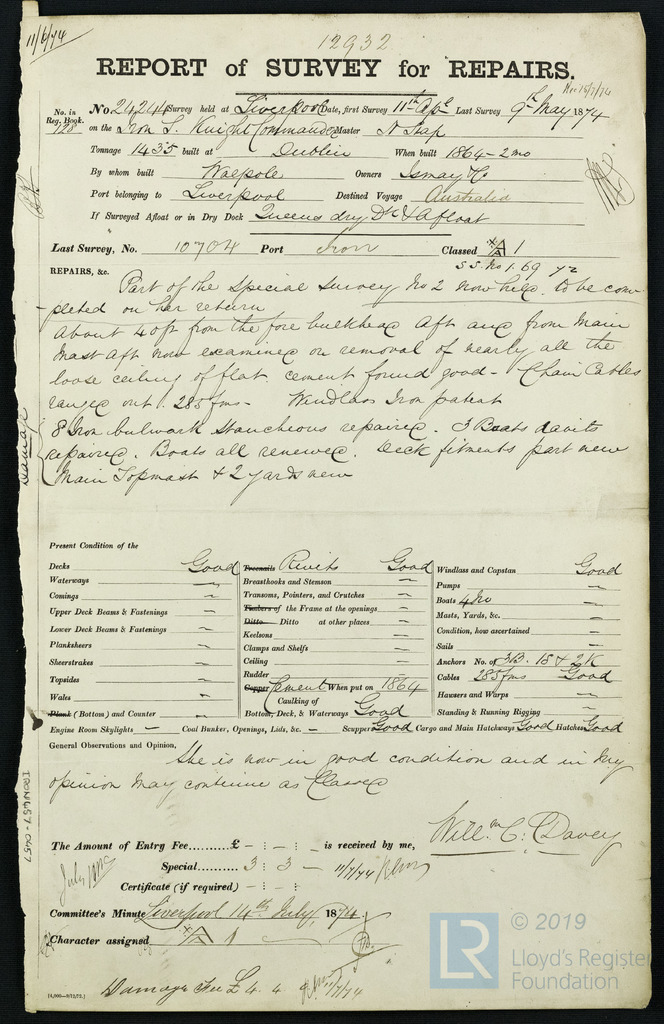 11/6/74
12932
REPORT of SURVEY for REPAIRS.
No. in Reg. Book.
728
No. 2424 Survey held at Liverpool Date, first Survey 11th Apl Last Survey 9th May 1874
on the Iron S. Knight Commander Master
Tonnage 1435 built at Dublin When built 1864-2mo
By whom built Walpole Owners Ismay &Co
Port belonging to Liverpool Destined Voyage Australia
If Surveyed Afloat or in Dry Dock Queens dry Dk & Afloat
Last Survey, No. 10704 Port Iron Classed A 1
S.S. No 1. 69
REPAIRS, &c. Part of the Special Survey No 2 now held. to be com-
-pleted on her return
About 40 ft from the fore bulkhead aft and from Main
Mast aft now examined on removal of nearly all the
loose ceiling of flat. cement found good - Chain Cables
ranged out. 285 fms - Windlass Iron patent
8 Iron bulwark Stancheons repaired. 3 Boats davits
repaired. Boats all renewed. Deck fitments part new
Main Topmast & 2 yards new
Damage
Present Condition of the
Decks Good Treenails Rivits Good Windlass and Capstan Good
Waterways — Breasthooks and Stemson — Pumps —
Comings — Transoms, Pointers, and Crutches — Boats 4 No —
Upper Deck Beams & Fastenings — Timbers of the Frame at the openings — Masts, Yards, &c. —
Lower Deck Beams & Fastenings — Ditto Ditto at other places — Condition, how ascertained —
Planksheers — Keelsons — Sails —
Sheerstrakes — Clamps and Shelfs — Anchors No. of 3B. 1S & 2K
Topsides — Ceiling — Cables 285 fms Good
Wales — Rudder — Hawsers and Warps —
Plank (Bottom) and Counter — Copper Cement When put on 1864 Standing & Running Rigging —
Caulking of Bottom, Deck, & Waterways Good
Engine Room Skylights — Coal Bunker, Openings, Lids, &c. — Scuppers Good Cargo and Main Hatchways Good Hatches Good
General Observations and Opinion, She is now in good condition and in my
opinion may continue as Classed
Willm C. Davey
The Amount of Entry Fee......£ - : - : - is received by me,
Special.......... 3 : 3 - 11/7/74
Certificate (if required) - : - : -
Committee's Minute Liverpool 14th July, 1874
Character assigned A 1
Damage Fee £4.4 11/7/74
IRON657-0457
© 2019
LR
Lloyd's Register
Foundation